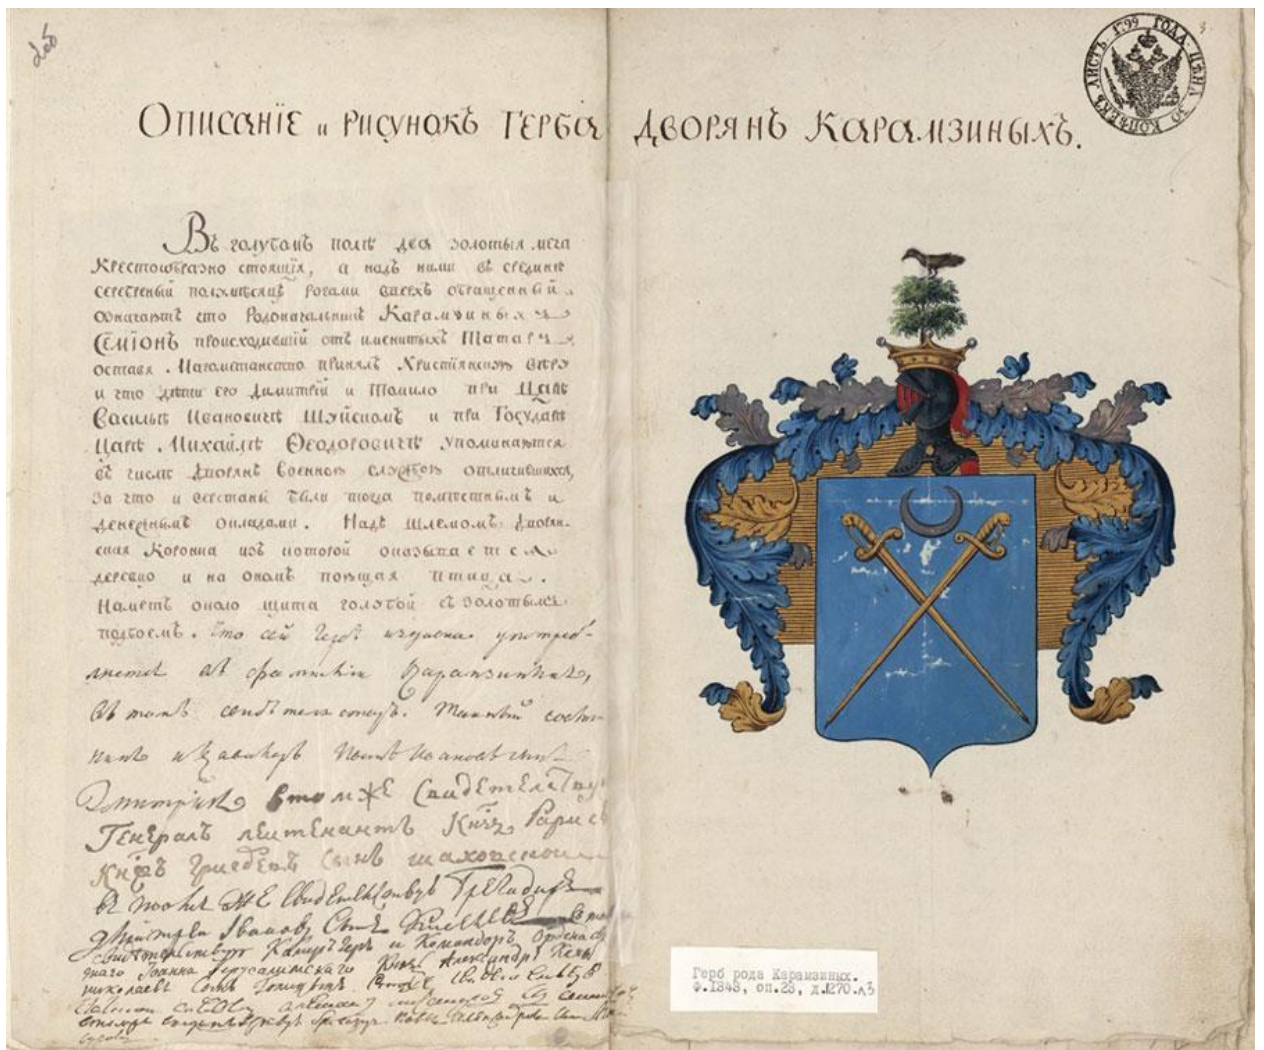 Описанїе и рисунокъ герба дворянъ Карамзиныхъ.
ЛИСТЪ 1799 ГОДА ЦѢНА 30 КОПѢЕКЪ
3
Въ голубомъ полѣ два золотыя меча
Крестообразно стоящїя, а надъ ними въ срединѣ
серебреный полумѣсяцъ рогами вверхъ обращенный
означаютъ что Родоначальникъ Карамзиныхъ
Семїонъ происходившїй отъ именитыхъ Татаръ
оставя Магометанство принялъ Христїянскую вѣру
и что дѣти его Димитрїй и Томило при Царѣ
Васильѣ Ивановичѣ Шуйскомъ и при Государѣ
Царѣ Михайлѣ Ѳеодоровичѣ упоминаются
въ числѣ Дворянъ военною службою отличившихся,
за что и верстаны были тогда помѣстнымъ и
денежнымъ окладами. Надъ шлемомъ дворян-
ская Корона изъ которой оказывается
деревцо и на ономъ поющая птица.
Наметъ около щита голубой съ золотымъ
подбоемъ. Что сей Гербъ издавна употреб-
ляется въ фамилїи Карамзиныхъ,
въ томъ свидѣтельствуетъ. Тайный совѣт-
никъ и Кавалеръ Ивановъ сынъ
Дмитрїевъ в том же Свидетелству
Генералъ леитенантъ Кнзь Борисъ
Кнзь Григорьевъ Сынъ шаховской
в томъ же свидетельствуетъ Бригадиръ
Ивановъ Сынъ
свидетельствуетъ Камергеръ и Командоръ Ордена
Иоанна Иерусалимскаго Кнзь Александръ
николаевъ Сынъ
Герб рода Карамзиных.
Ф.1343, оп.23, д.1270.л3